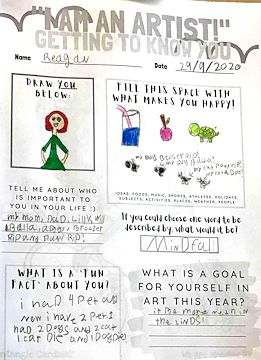 "I AM AN ARTIST!"
GETTING TO KNOW YOU
Name Reagan Date 29/9/2020
DRAW YOU
BELOW:
FILL THIS SPACE WITH
WHAT MAKES YOU HAPPY!
IDEAS: FOODS, MUSIC, SPORTS, ATHLETES, HOLIDAYS,
SUBJECTS, ACTIVITIES, PLACES, WEATHER, PEOPLE
TELL ME ABOUT WHO
IS IMPORTANT TO
YOU IN YOUR LIFE :)
my mam, DaD, Lilly,
If you could choose one word to be
described by, what would it be?
MinDfull
WHAT IS A 'FUN
FACT' ABOUT YOU?
i haD 4 Pet and
now i have 2 Pet I
haD 2 Dogs and 2 cat
1 cat Die and 1 Dog Die
WHAT IS A GOAL
FOR YOURSELF IN
ART THIS YEAR?